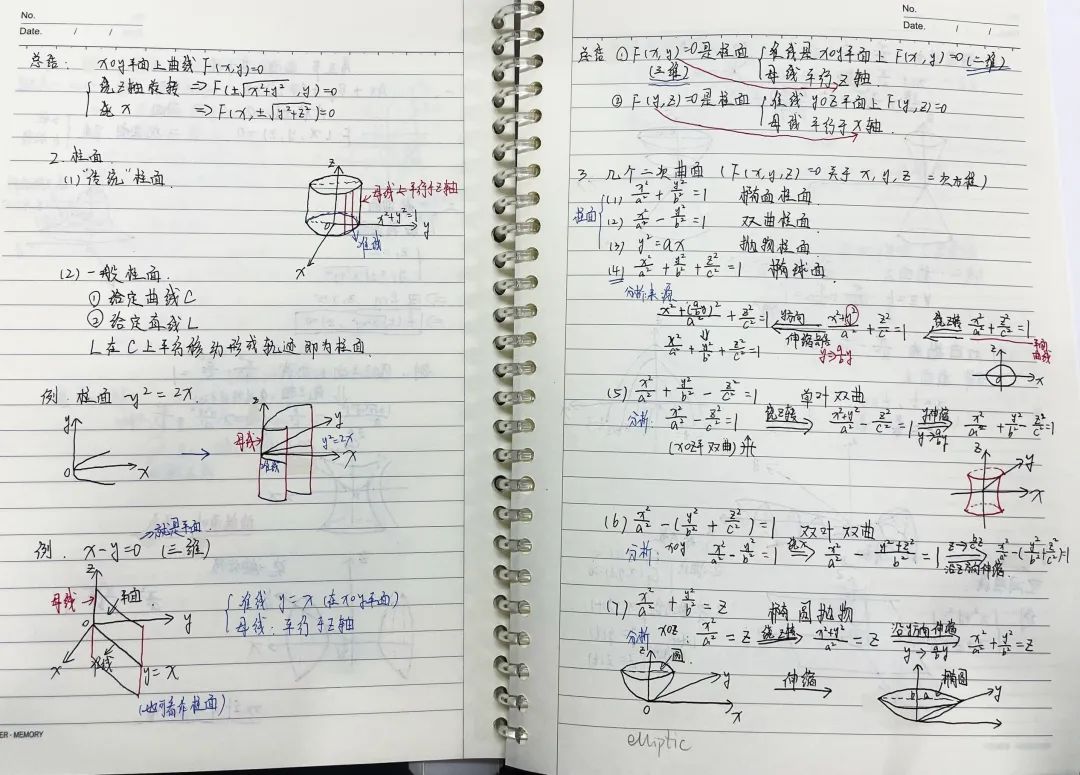 No.
Date. / /
总结: xoy平面上曲线 F(x,y)=0
绕Z轴旋转 ⇒ F(±√x²+y², y)=0
绕 x ⇒ F(x, ±√y²+z²)=0
2. 柱面.
(1) "传统"柱面.
z
母线L平行于Z轴
x²+y²=1
o
y
准线
x
(2) 一般柱面.
① 给定曲线C
② 给定直线L
L在C上平行移动形成轨迹即为柱面.
例. 柱面 y²=2x.
y
o
x
z
母线
准线
y
y²=2x
x
就是平面.
例. x-y=0 (三维)
z
母线
平面.
o
y
准线
x
y=x
准线 y=x (在xoy平面)
母线: 平行于Z轴
(也可看作柱面)
ER·MEMORY
No.
Date. / /
总结 ① F(x,y)=0是柱面 准线是xoy平面上F(x,y)=0(二维)
(三维) 母线平行Z轴
② F(y,z)=0是柱面 准线yoz平面上F(y,z)=0
母线平行于X轴.
3. 几个二次曲面 (F(x,y,z)=0关于x,y,z 二次方程)
柱面
(1) x²/a² + y²/b² =1 椭面柱面
(2) x²/a² - y²/b² =1 双曲柱面
(3) y²=ax 抛物柱面
(4) x²/a² + y²/b² + z²/c² =1 椭球面
分析来源
x²+(a/b y)²/a² + z²/c²=1 ⇐ y方向 伸缩 y→a/b y x²+y²/a² + z²/c²=1 ⇐ 绕Z转 x²/a² + z²/c²=1
平面曲线
x²/a² + y²/b² + z²/c²=1
z
o
x
(5) x²/a² + y²/b² - z²/c² =1 单叶双曲
分析: x²/a² - z²/c²=1 绕Z转 ⇒ x²+y²/a² - z²/c²=1 y伸缩 y→a/b y ⇒ x²/a² + y²/b² - z²/c²=1
(xoz平双曲)
z
y
x
(6) x²/a² - (y²/b² + z²/c²)=1 双叶双曲
分析: xoy x²/a² - y²/b²=1 绕x ⇒ x²/a² - y²+z²/b²=1 z→b/c z 沿Z方向伸缩 ⇒ x²/a² - (y²/b² + z²/c²)=1
(7) x²/a² + y²/b² = z 椭圆抛物
分析 xoz: x²/a² = z 绕Z转 ⇒ x²+y²/a² = z 沿y方向伸缩 y→a/b y ⇒ x²/a² + y²/b² = z
z
圆
y
o
x
伸缩
b
a
椭圆
y
elliptic